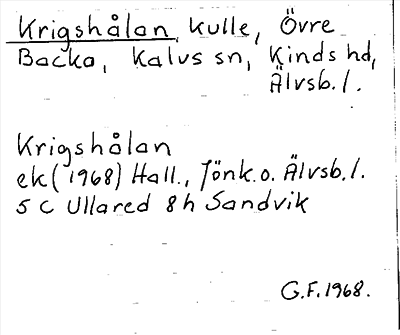 Krigshålan, kulle, Övre
Backa, Kalvs sn, Kinds hd,
Älvsb. l.
Krigshålan
ek (1968) Hall., Jönk. o. Älvsb. l.
5 C Ullared 8 h Sandvik
G.F. 1968.